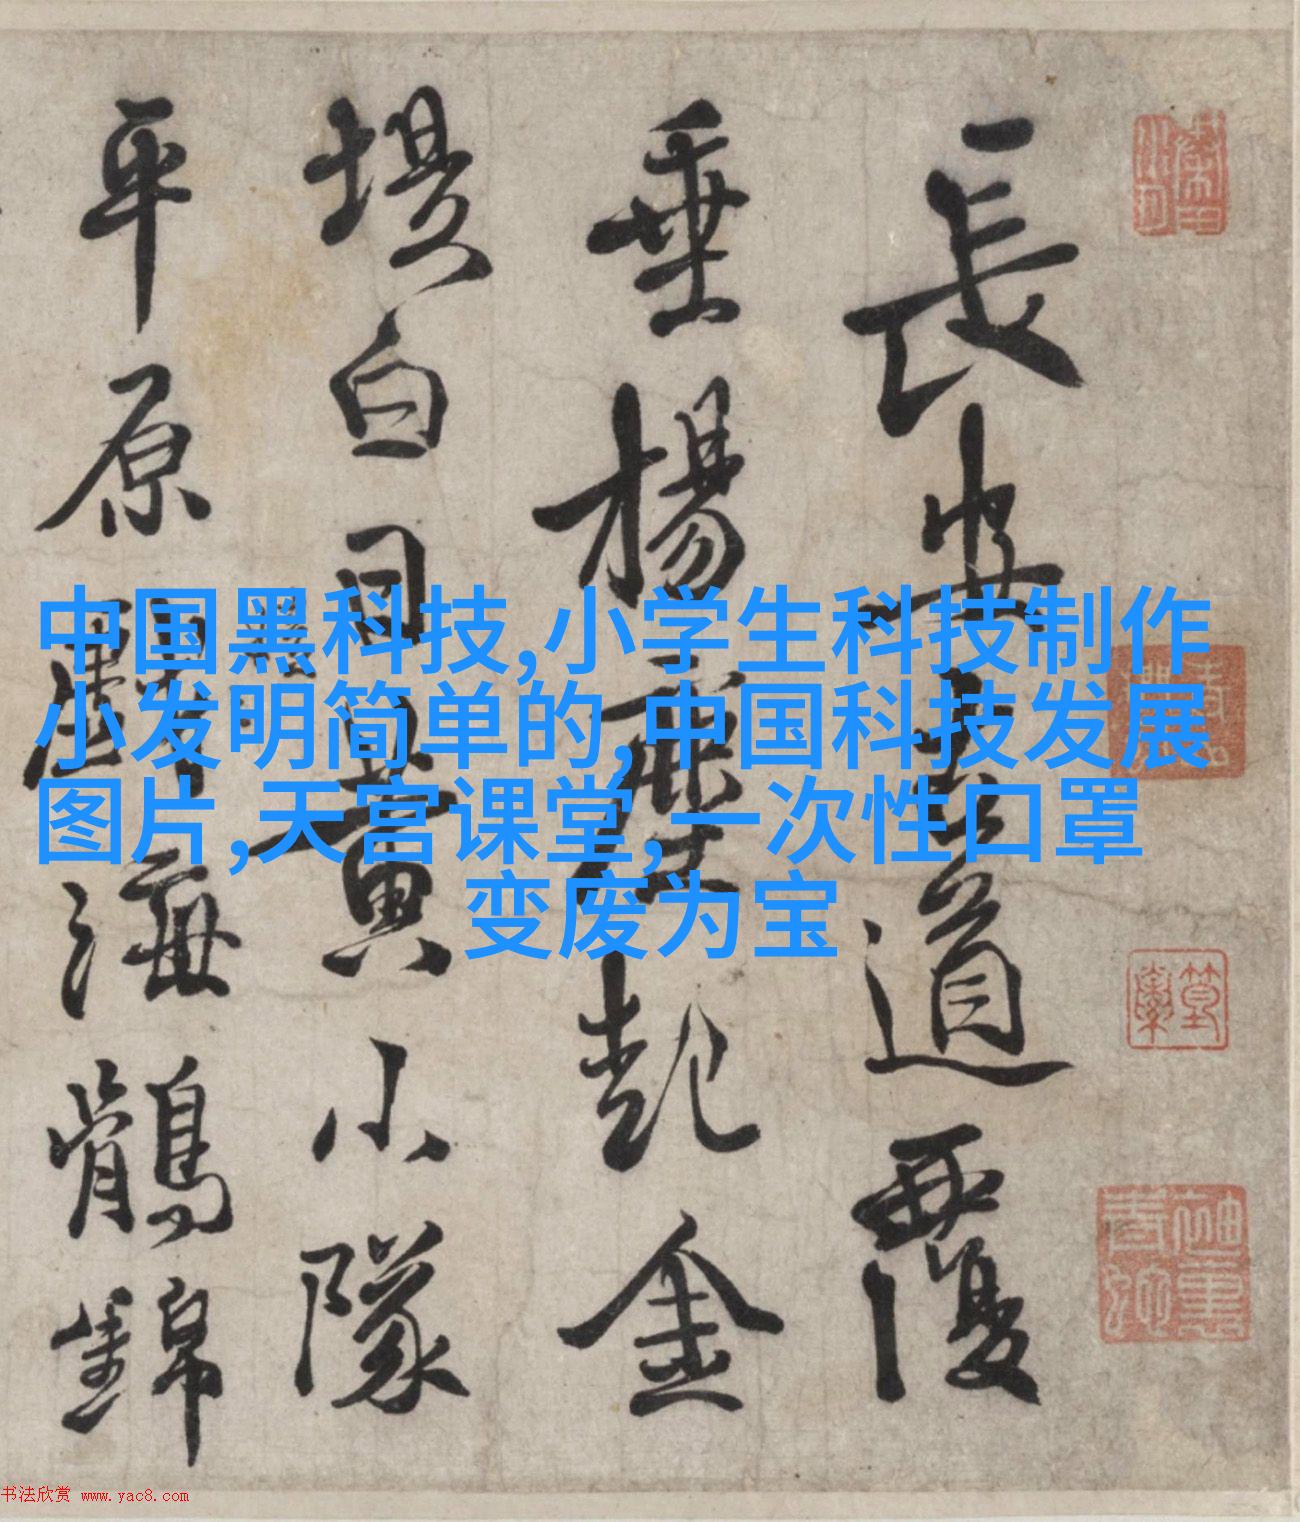 中国黑科技,小学生科技制作
小发明简单的,中国科技发展
图片,天宫课堂,一次性口罩
变废为宝
長安道覆
垂楊起金
堤白日黃小隊
平原海鶻錦
书法欣赏 www.yac8.com